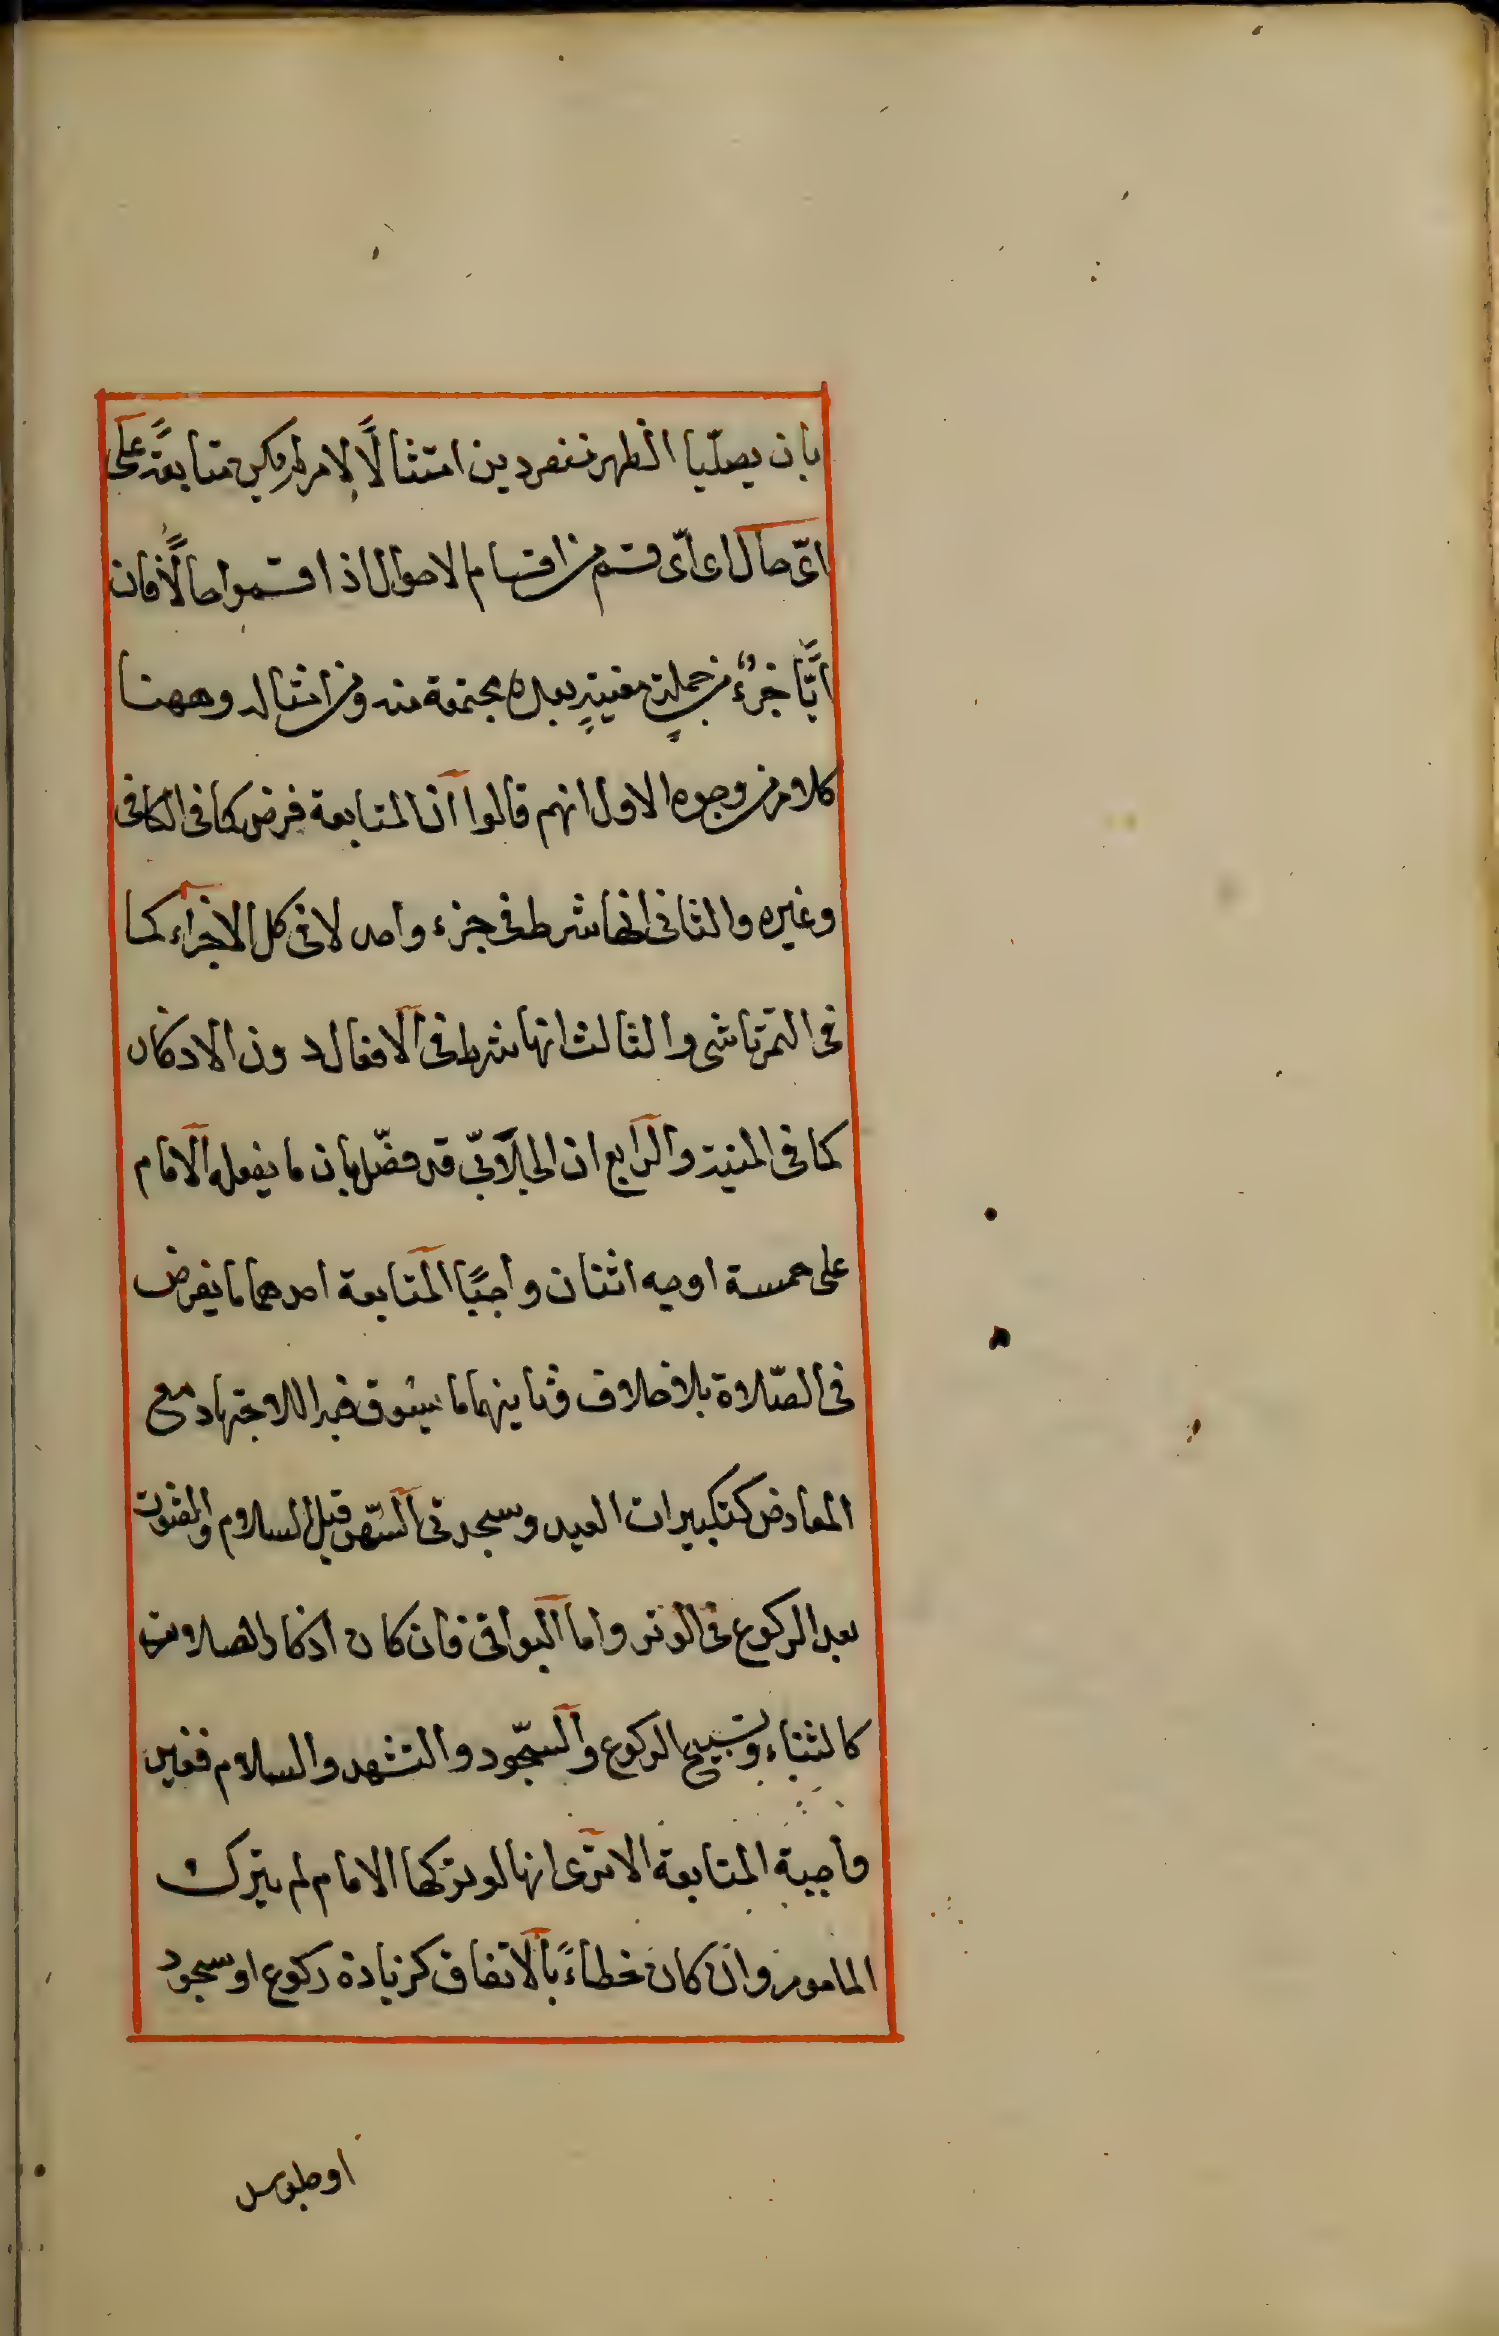 بان يصلّيا الظهر منفردين امتثالًا لامر لم يكن متابعةً على
اىّ حال اى اىّ قسم من اقسام الاحوال اذا قسموا حالًا فان
ايًّا جزءٌ من جملةٍ معينةٍ بعده مجتمعة منه ومن امثاله وههنا
كلام من وجوه الاول انهم قالوا ان المتابعة فرض كما فى الكافى
وغيره والثانى انها شرط فى جزء واحد لا فى كل الاجزاء كما
فى التمرتاشى والثالث انها شرط فى الافعال دون الاذكار
كما فى المنية والرابع ان الجلّابىّ قد فصّل بان ما يفعله الامام
على خمسة اوجه اثنان واجبًا المتابعة احدهما ما يفرض
فى الصّلاة بلا خلاف وثانيهما ما يسوق فيه الاجتهاد مع
المعارض كتكبيرات العيد وسجدتى السّهو قبل السلام والقنوت
بعد الركوع فى الوتر واما البواقى فان كان اذكار الصلاة
كالثناء وتسبيح الركوع والسّجود والتشهد والسلام فغير
واجبة المتابعة الا ترى انها لو تركها الامام لم يترك
الماموم وان كان خطاءً بالاتفاق كزيادة ركوع او سجود
او جلوس